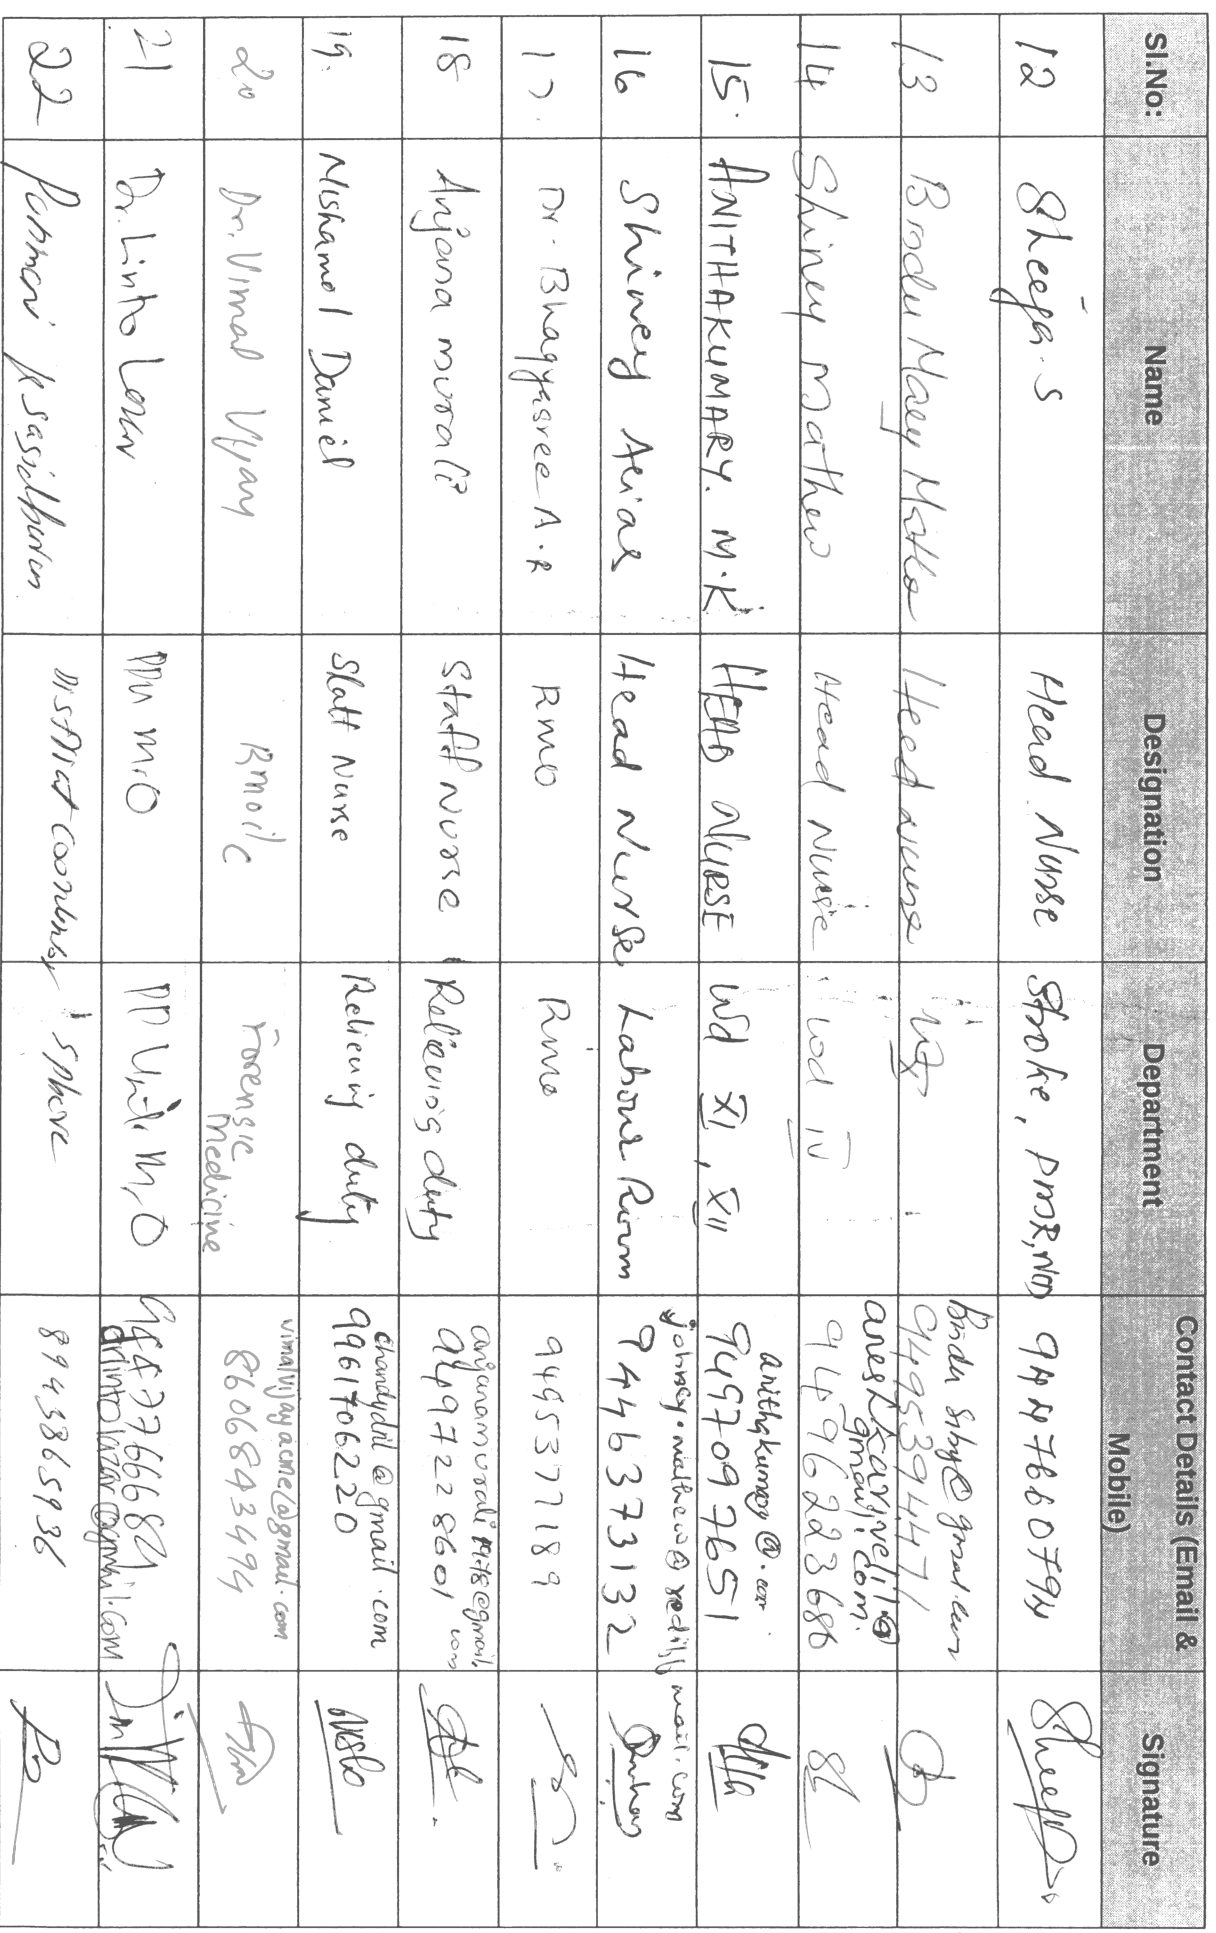 Sl.No: Name Designation Department Contact Details (Email & Mobile) Signature
12 Sheeja.S Head Nurse Stroke, PMR, 9447660794
13 Bindu Mary Head Nurse 9495394471
14 Shiney Mathew Head Nurse wd IV 9496223686
gmail.com
15. ANITHAKUMARY. M.K HEAD NURSE Wd XI, XII anithakumary@.com
9497097651
16 Shiney Head Nurse Labour Room johnsey.mathew@rediffmail.com
9446373132
17. Dr. Bhagyasree A.R RMO RMO 9495377189
18 Anjana murali Staff Nurse Relieving duty anjanamurali1978@gmail.com
9497228601
19. Nishamol Daniel Staff Nurse Relieving duty chandydril@gmail.com
9961706220
20 Dr. Vimal Vijay Forensic Medicine vimalvijayacme@gmail.com
8606843494
21 Dr. Linto Lazar PP Unit M.O 9447766684
drlintolazar@gmail.com
22 sasidharan District Sphere 8943865936